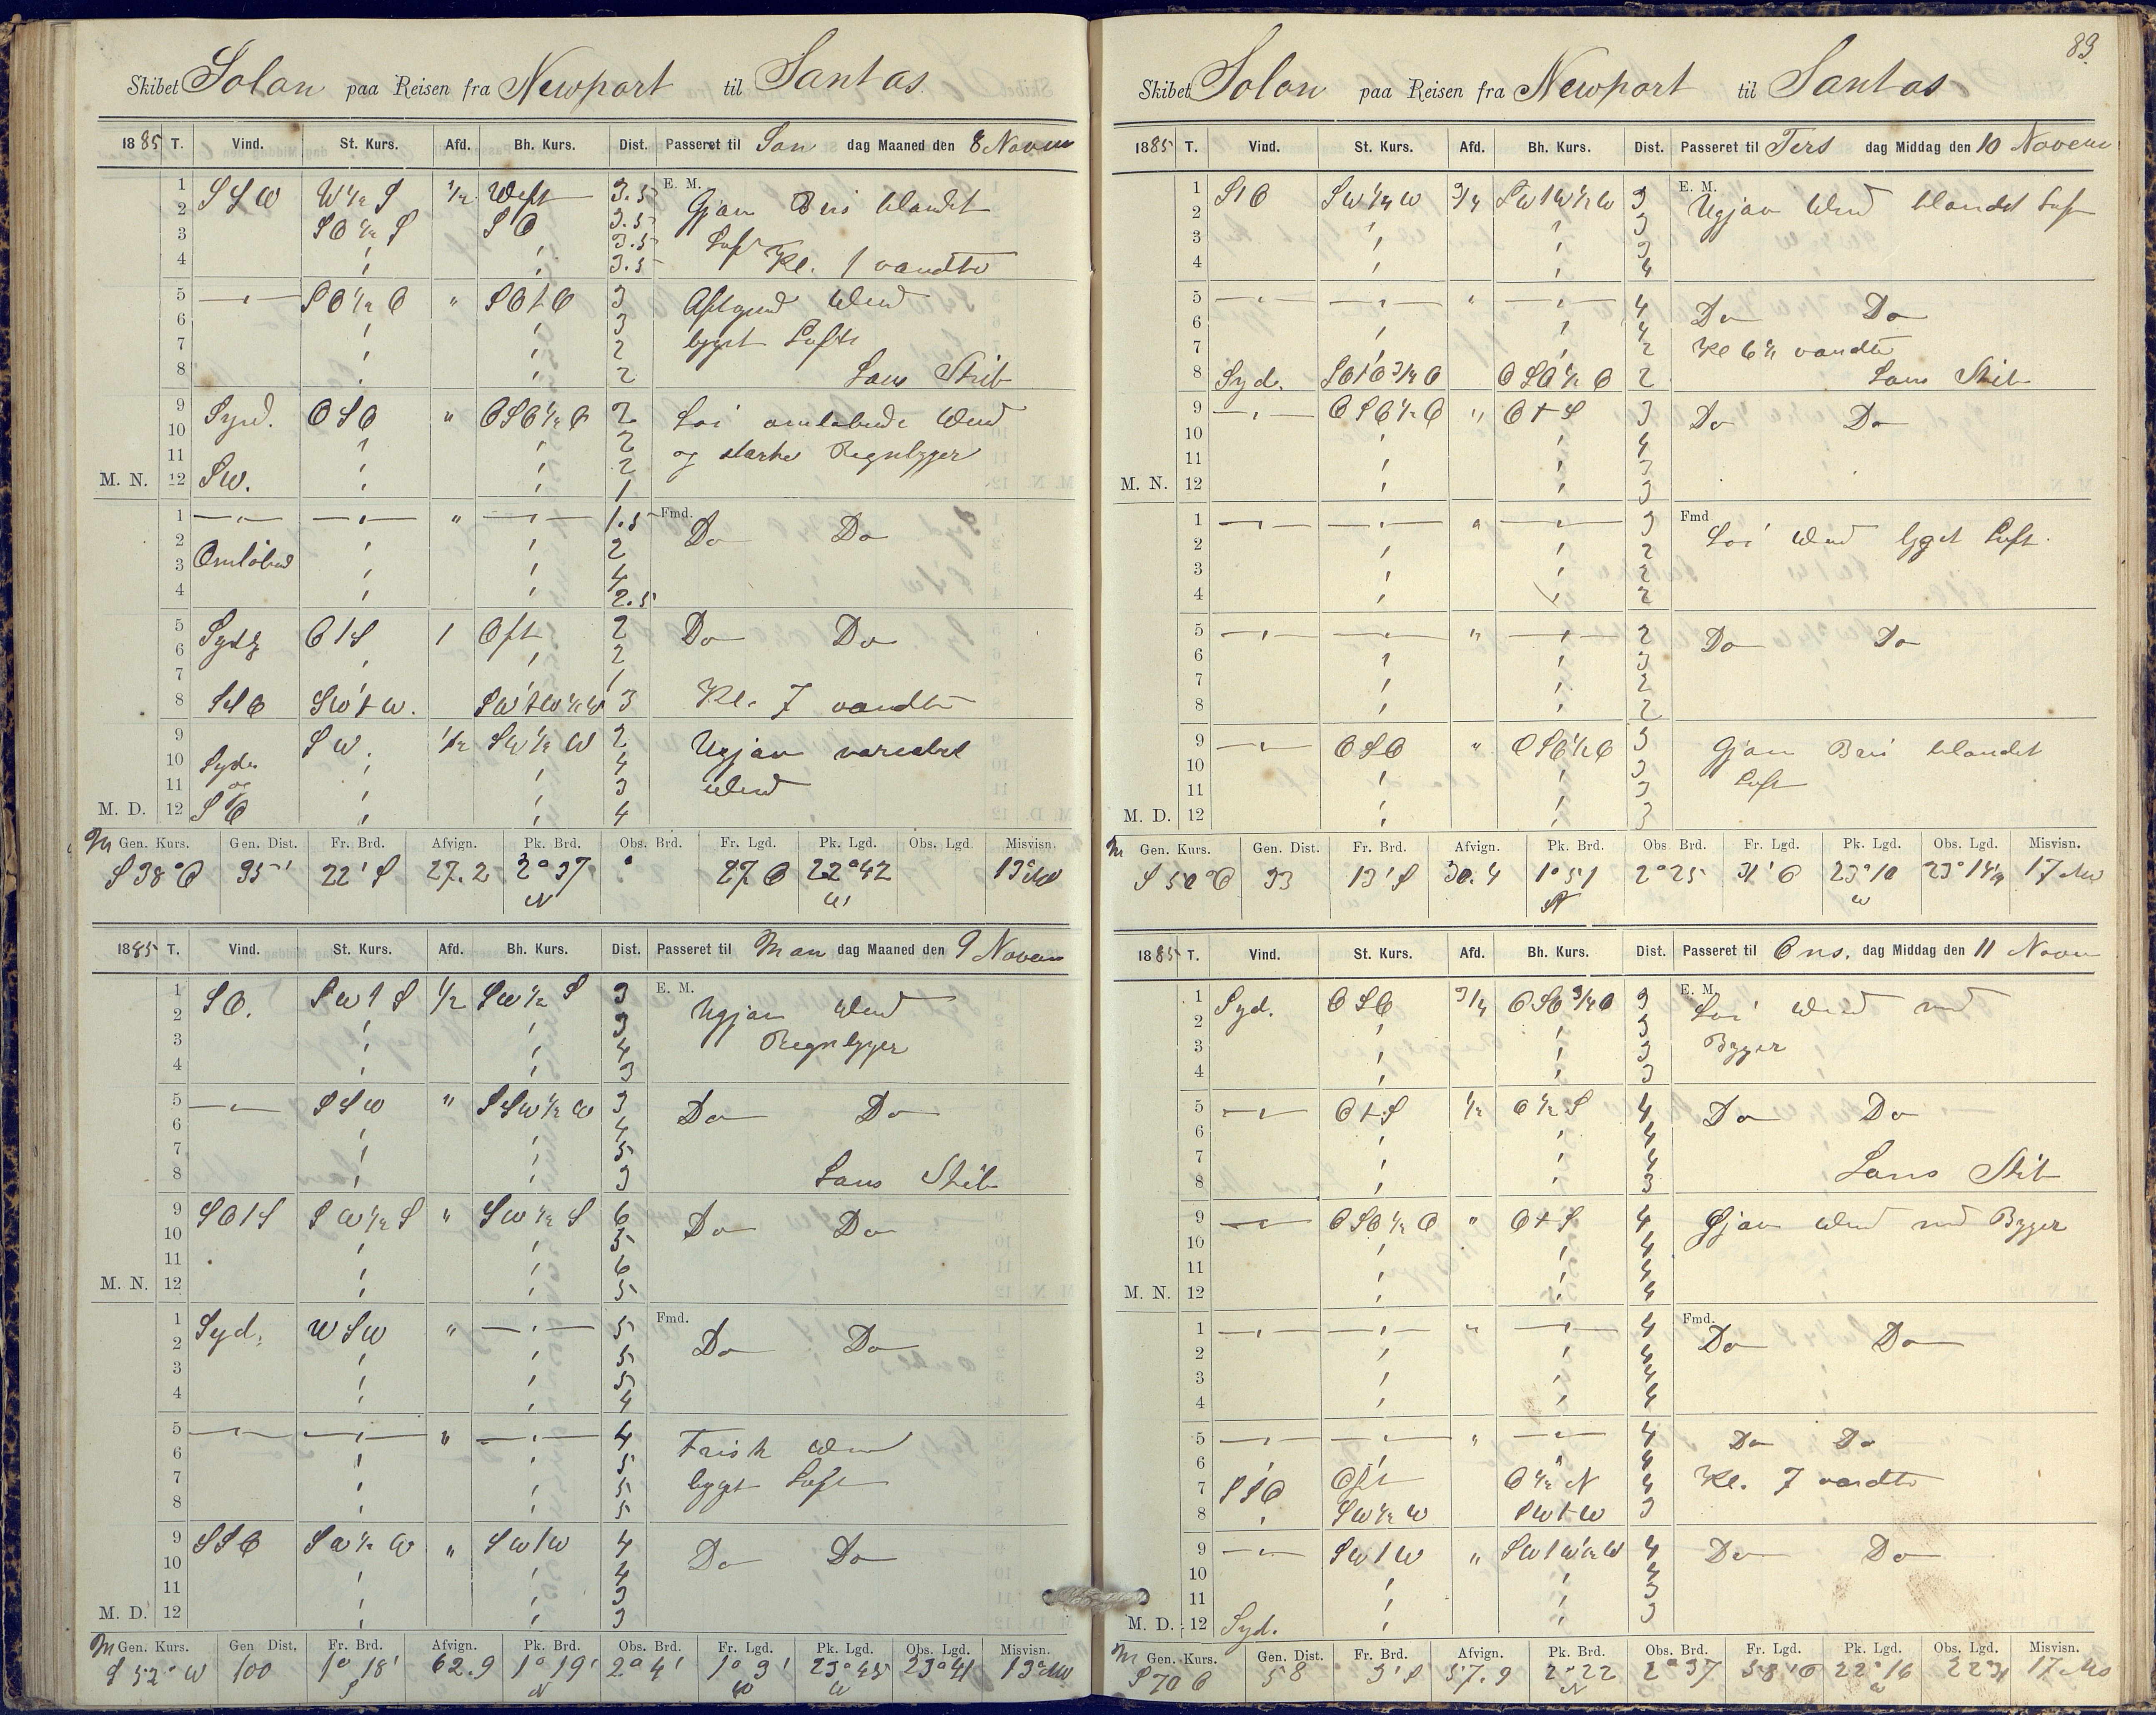 Skibet Solon paa Reisen fra Newport til Santos
1885 T. Vind. St. Kurs. Afd. Bh. Kurs. Dist. Passeret til Søn dag Maaned den 8 Novem
E. M.
1 SSW W½S ½ West 3.5 Gjæv Bris blandet
2 SO½S SO 3.5 Luft
3 3.5 Kl. 1 vandte
4 3.5
5 SO½O " SOtO 3 Aftgend Wind
6 3
7 2 bygst Luft
8 2 Lans Skib
9 Synd. OSO " OSO½O 2 Løi omløbende Wind
10 2 og stærke Regnbyger
11 2
M. N. 12 SW. 1
Fmd.
1 " 1.5 Do Do
2 Omløbend 2
3 4
4 2.5
5 Sydg OtS 1 Ost 2 Do Do
6 2
7 1
8 SSO SWtW. SWtW½W 3 Kl. 7 vandte
9 SW. ½ SW½W 2 Ugjæv variabel
10 Syd 4 Wind
11 og 3
M. D. 12 SO 4
Gen. Kurs. Gen. Dist. Fr. Brd. Afvign. Pk. Brd. Obs. Brd. Fr. Lgd. Pk. Lgd. Obs. Lgd. Misvisn.
S 38° O 35' 22' S 27.2 2° 37 27. O 22° 42 13°
N W
1885 T. Vind. St. Kurs. Afd. Bh. Kurs. Dist. Passeret til Man dag Maaned den 9 Novem
E. M.
1 SO. SWtS ½ SW½S 3 Ugjæv Wind
2 3 Regnbyger
3 4
4 3
5 SSW " SSW½W 3 Do Do
6 4
7 5
8 3 Lans Skib
9 SOtS SW½S " SW½S 6 Do Do
10 5
11 6
M. N. 12 5
Fmd.
1 Syd. WSW " 5 Do Do
2 5
3 5
4 4
5 " 4 Frisk Wind
6 5
7 5 bygst Luft
8 5
9 SSO SW½W " SWtW 4 Do Do
10 4
11 3
M. D. 12 3
Gen. Kurs. Gen Dist. Fr. Brd. Afvign. Pk. Brd. Obs. Brd. Fr. Lgd. Pk. Lgd. Obs. Lgd. Misvisn.
S 52° W 100 1° 18' 62.9 1° 19' 2° 4' 1° 3' 23° 45 23° 41 13°
S N W W
83.
Skibet Solon paa Reisen fra Newport til Santos
1885 T. Vind. St. Kurs. Afd. Bh. Kurs. Dist. Passeret til Tirs dag Middag den 10 Novem
E. M.
1 StO SW¼W ¾ SWtW½W 3 Ugjæv Wind blandet Luft
2 3
3 3
4 4
5 " 4 Do Do
6 4
7 2 Kl 6½ vandte
8 Syd. SOtO¾O OSO½O 2 Lans Skib
9 OSO½O " OtS 3 Do Do
10 4
11 3
M. N. 12 3
Fmd
1 " 3 Løi Wind bygst Luft.
2 2
3 2
4 2
5 " 2 Do Do
6 3
7 2
8 2
9 OSO " OSO½O 3 Gjæv Bris blandet
10 3 Luft
11 3
M. D. 12 3
Gen. Kurs. Gen. Dist. Fr. Brd. Afvign. Pk. Brd. Obs Brd. Fr. Lgd. Pk. Lgd. Obs. Lgd. Misvisn.
S 50° O 33 13' S 30.4 1° 51 2° 25 31' O 23° 10 23° 14 17
N W
1885 T. Vind. St. Kurs. Afd. Bh. Kurs. Dist. Passeret til Ons. dag Middag den 11 Novem
E. M.
1 Syd. OSO ¾ OSO¾O 3 Løi Wind med
2 3
3 3 Byger
4 3
5 OtS ½ O½S 4 Do Do
6 4
7 4 Lans Skib
8 3
9 OSO½O " OtS 4 Gjæv Wind med Byger
10 4
11 4
M. N. 12 4
Fmd.
1 " 4 Do Do
2 4
3 4
4 4
5 " 4 Do Do
6 4
7 SSO Ost O½N 4 Kl. 7 vandte
8 SW½W SWtW 3
9 SWtW " SWtW½W 4 Do Do
10 4
11 3
M. D. 12 Syd. 3
Gen. Kurs. Gen. Dist. Fr. Brd. Afvign. Pk. Brd. Obs. Brd. Fr. Lgd. Pk. Lgd. Obs. Lgd. Misvisn.
S 70 O 58 3' S 57.9 2° 22 2° 37 58' O 22° 16 22° 31 17
N W